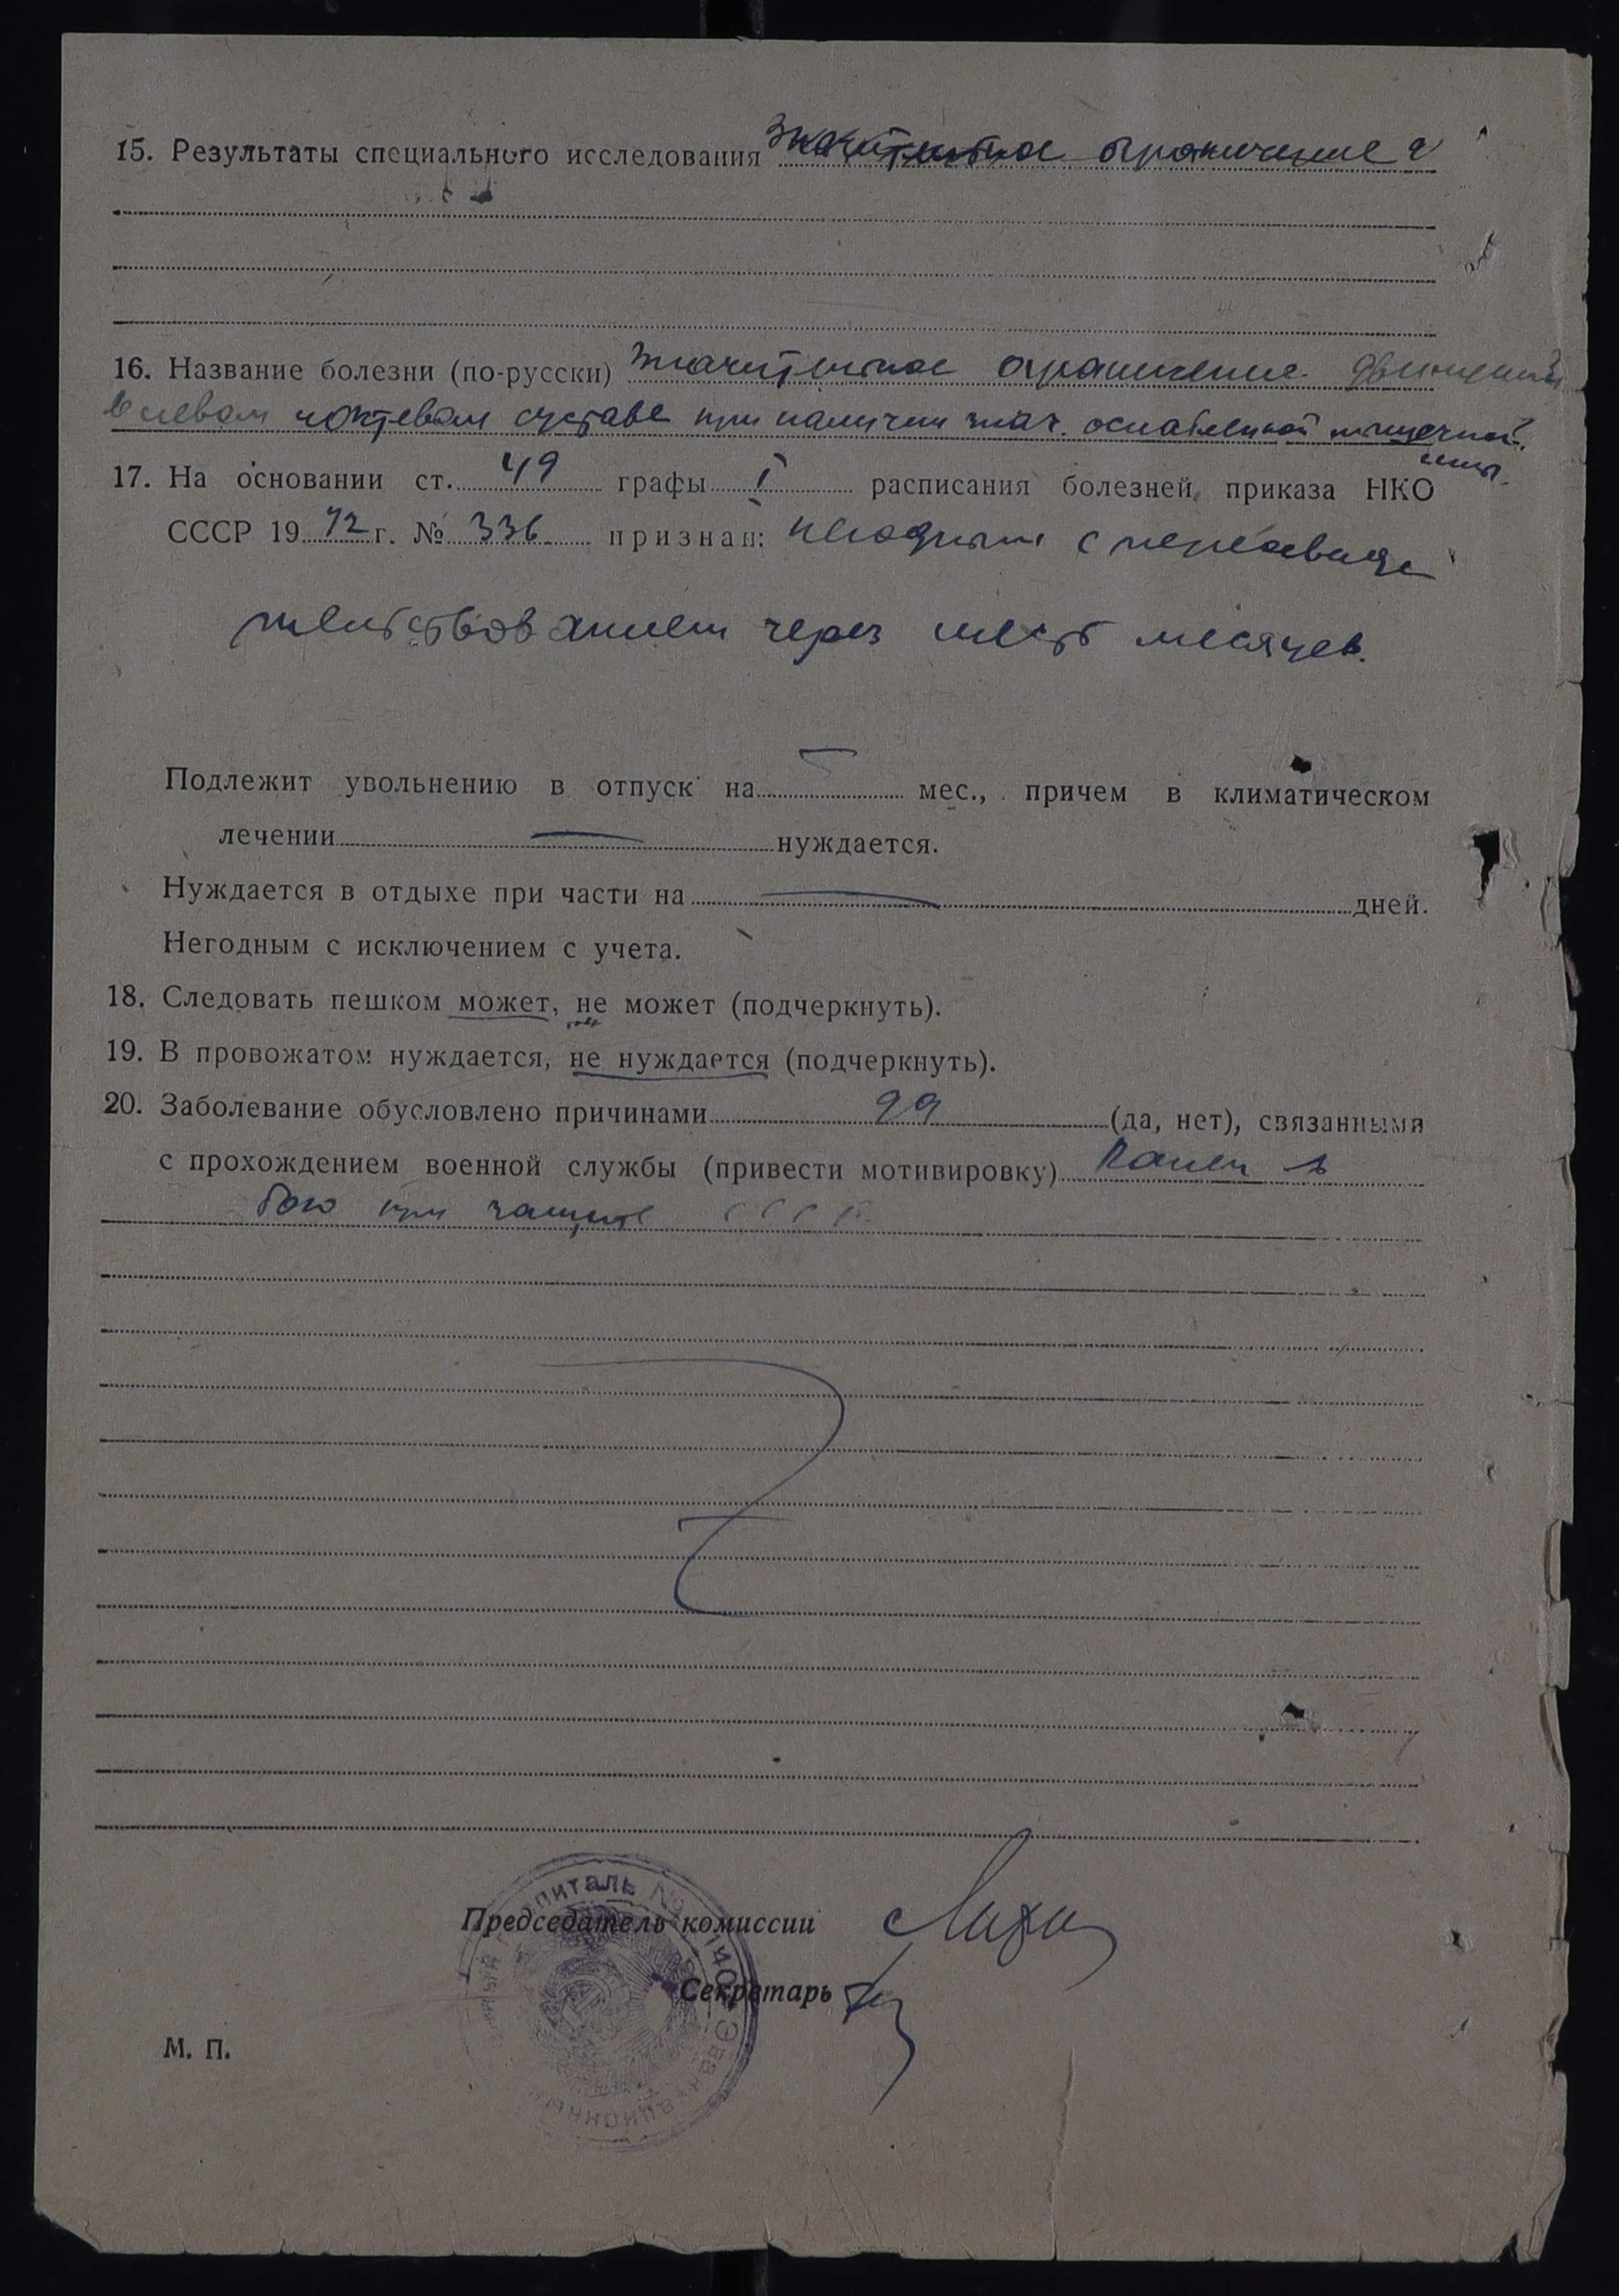 15. Результаты специального исследования Значительное ограничение д
16. Название болезни (по-русски) Значительное ограничение движений
в левом локтевом суставе при наличии знач. ослабленной мышечной
силы.
17. На основании ст. 49 графы I расписания болезней приказа НКО
СССР 1942 г. № 336 признан: негодным с переосвиде
тельствованием через шесть месяцев.
Подлежит увольнению в отпуск на — мес., причем в климатическом
лечении — нуждается.
Нуждается в отдыхе при части на — дней.
Негодным с исключением с учета.
18. Следовать пешком может, не может (подчеркнуть).
19. В провожатом нуждается, не нуждается (подчеркнуть).
20. Заболевание обусловлено причинами да (да, нет), связанными
с прохождением военной службы (привести мотивировку) Ранен в
бою при защите СССР.
питаль №
Председатель комиссии
Секретарь
Эвакуационный
М. П.